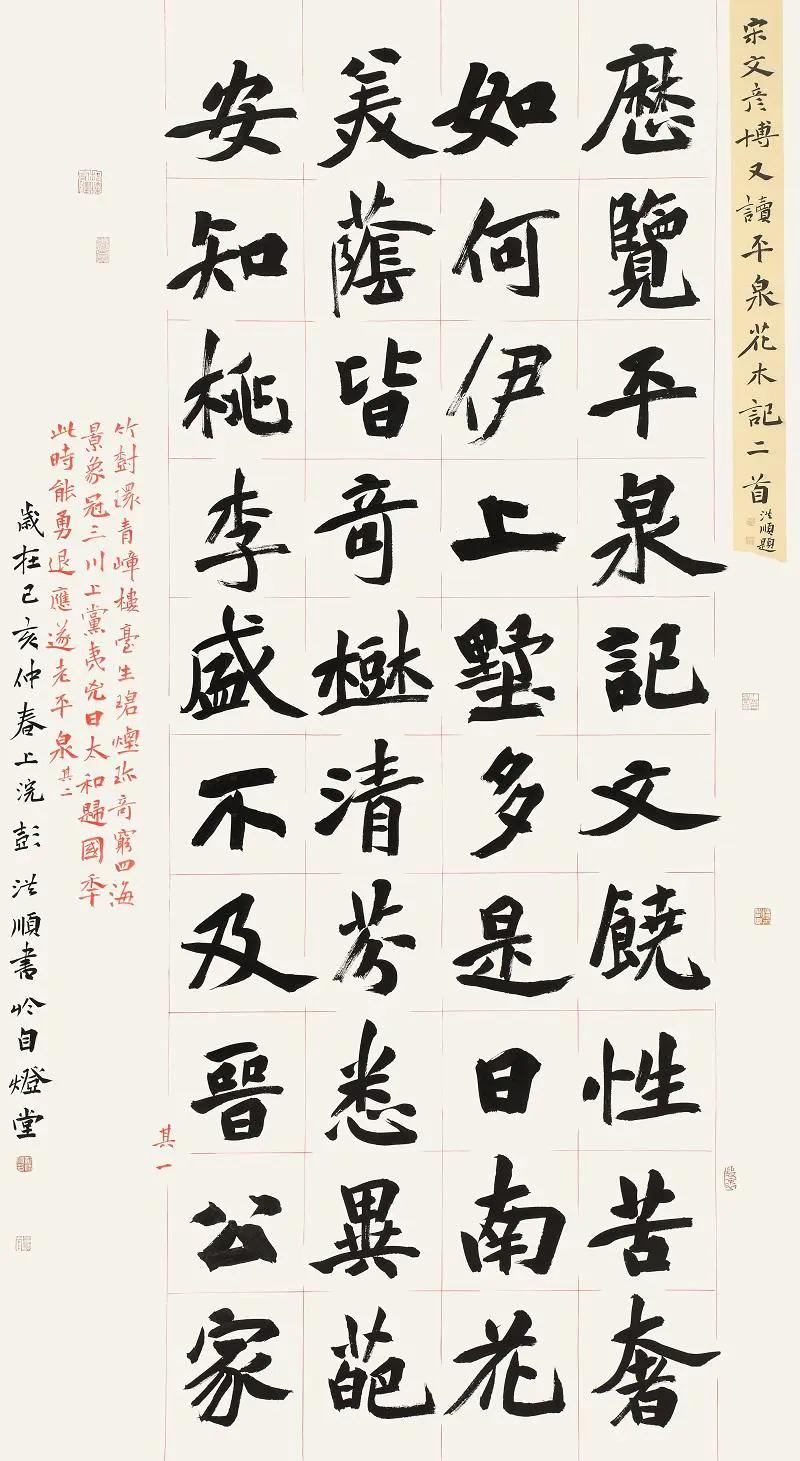 宋文彦博又讀平泉花木記二首
洪順題
歷覽平泉記文饒性苦奢
如何伊上墅多是日南花
美蔭皆奇樾清芬悉異葩
安知桃李盛不及晉公家
其一
竹樹環青嶂樓臺生碧煙珎奇窮四海
景象冠三川上黨夷兇日太和歸國年
此時能勇退應遂老平泉其二
歲在己亥仲春上浣彭洪順書於自燈堂